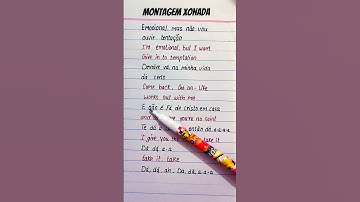 MONTAGEM XONADA
Emocional, mas não vou
ouvir tentação
I'm emotional, but I won't
Give in to temptation
Devolve vá na minha vida
dá certo
Come back, Go on, Life
works out with me
E não é Fé de Cristo em casa
and you're no saint
Te dá a então dá, a-a-a
I give you the take it
Dá, dá, a-a
take it, take
Dá, dá, ah, Da, dá, a-a-a